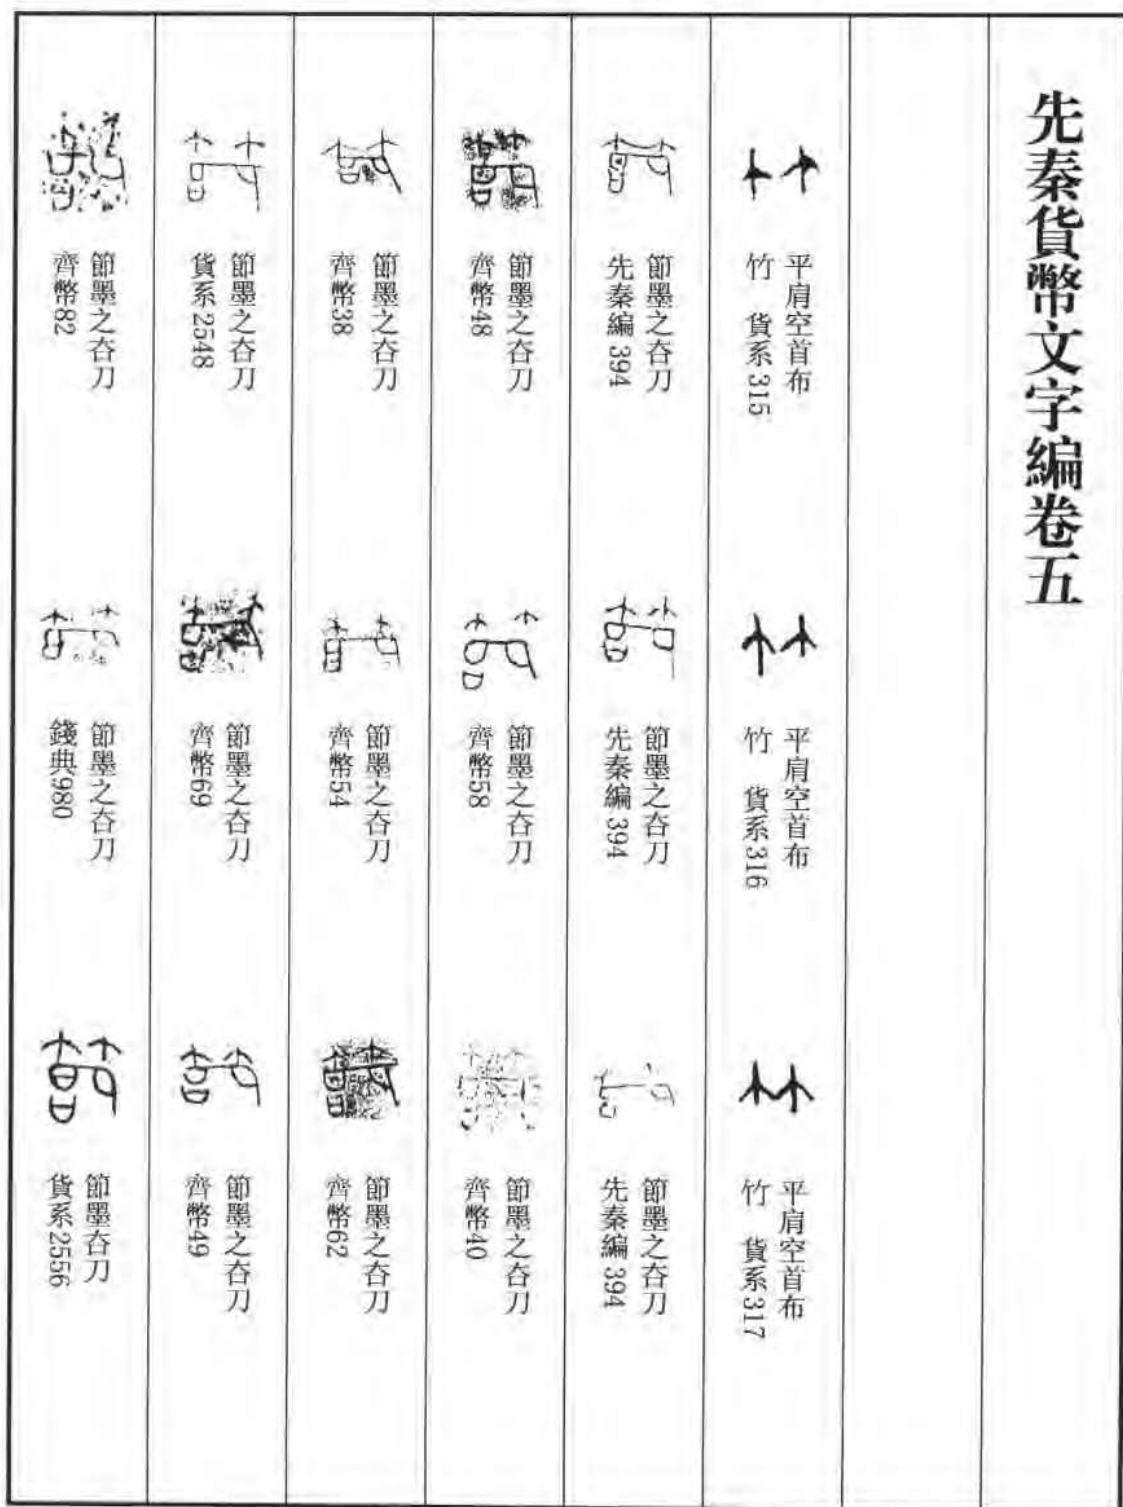 先秦貨幣文字編卷五
平肩空首布
竹　貨系315
平肩空首布
竹　貨系316
平肩空首布
竹　貨系317
節墨之夻刀
先秦編394
節墨之夻刀
先秦編394
節墨之夻刀
先秦編394
節墨之夻刀
齊幣48
節墨之夻刀
齊幣58
節墨之夻刀
齊幣40
節墨之夻刀
齊幣38
節墨之夻刀
齊幣54
節墨之夻刀
齊幣62
節墨之夻刀
貨系2548
節墨之夻刀
齊幣69
節墨之夻刀
齊幣49
節墨之夻刀
齊幣82
節墨之夻刀
錢典980
節墨夻刀
貨系2556